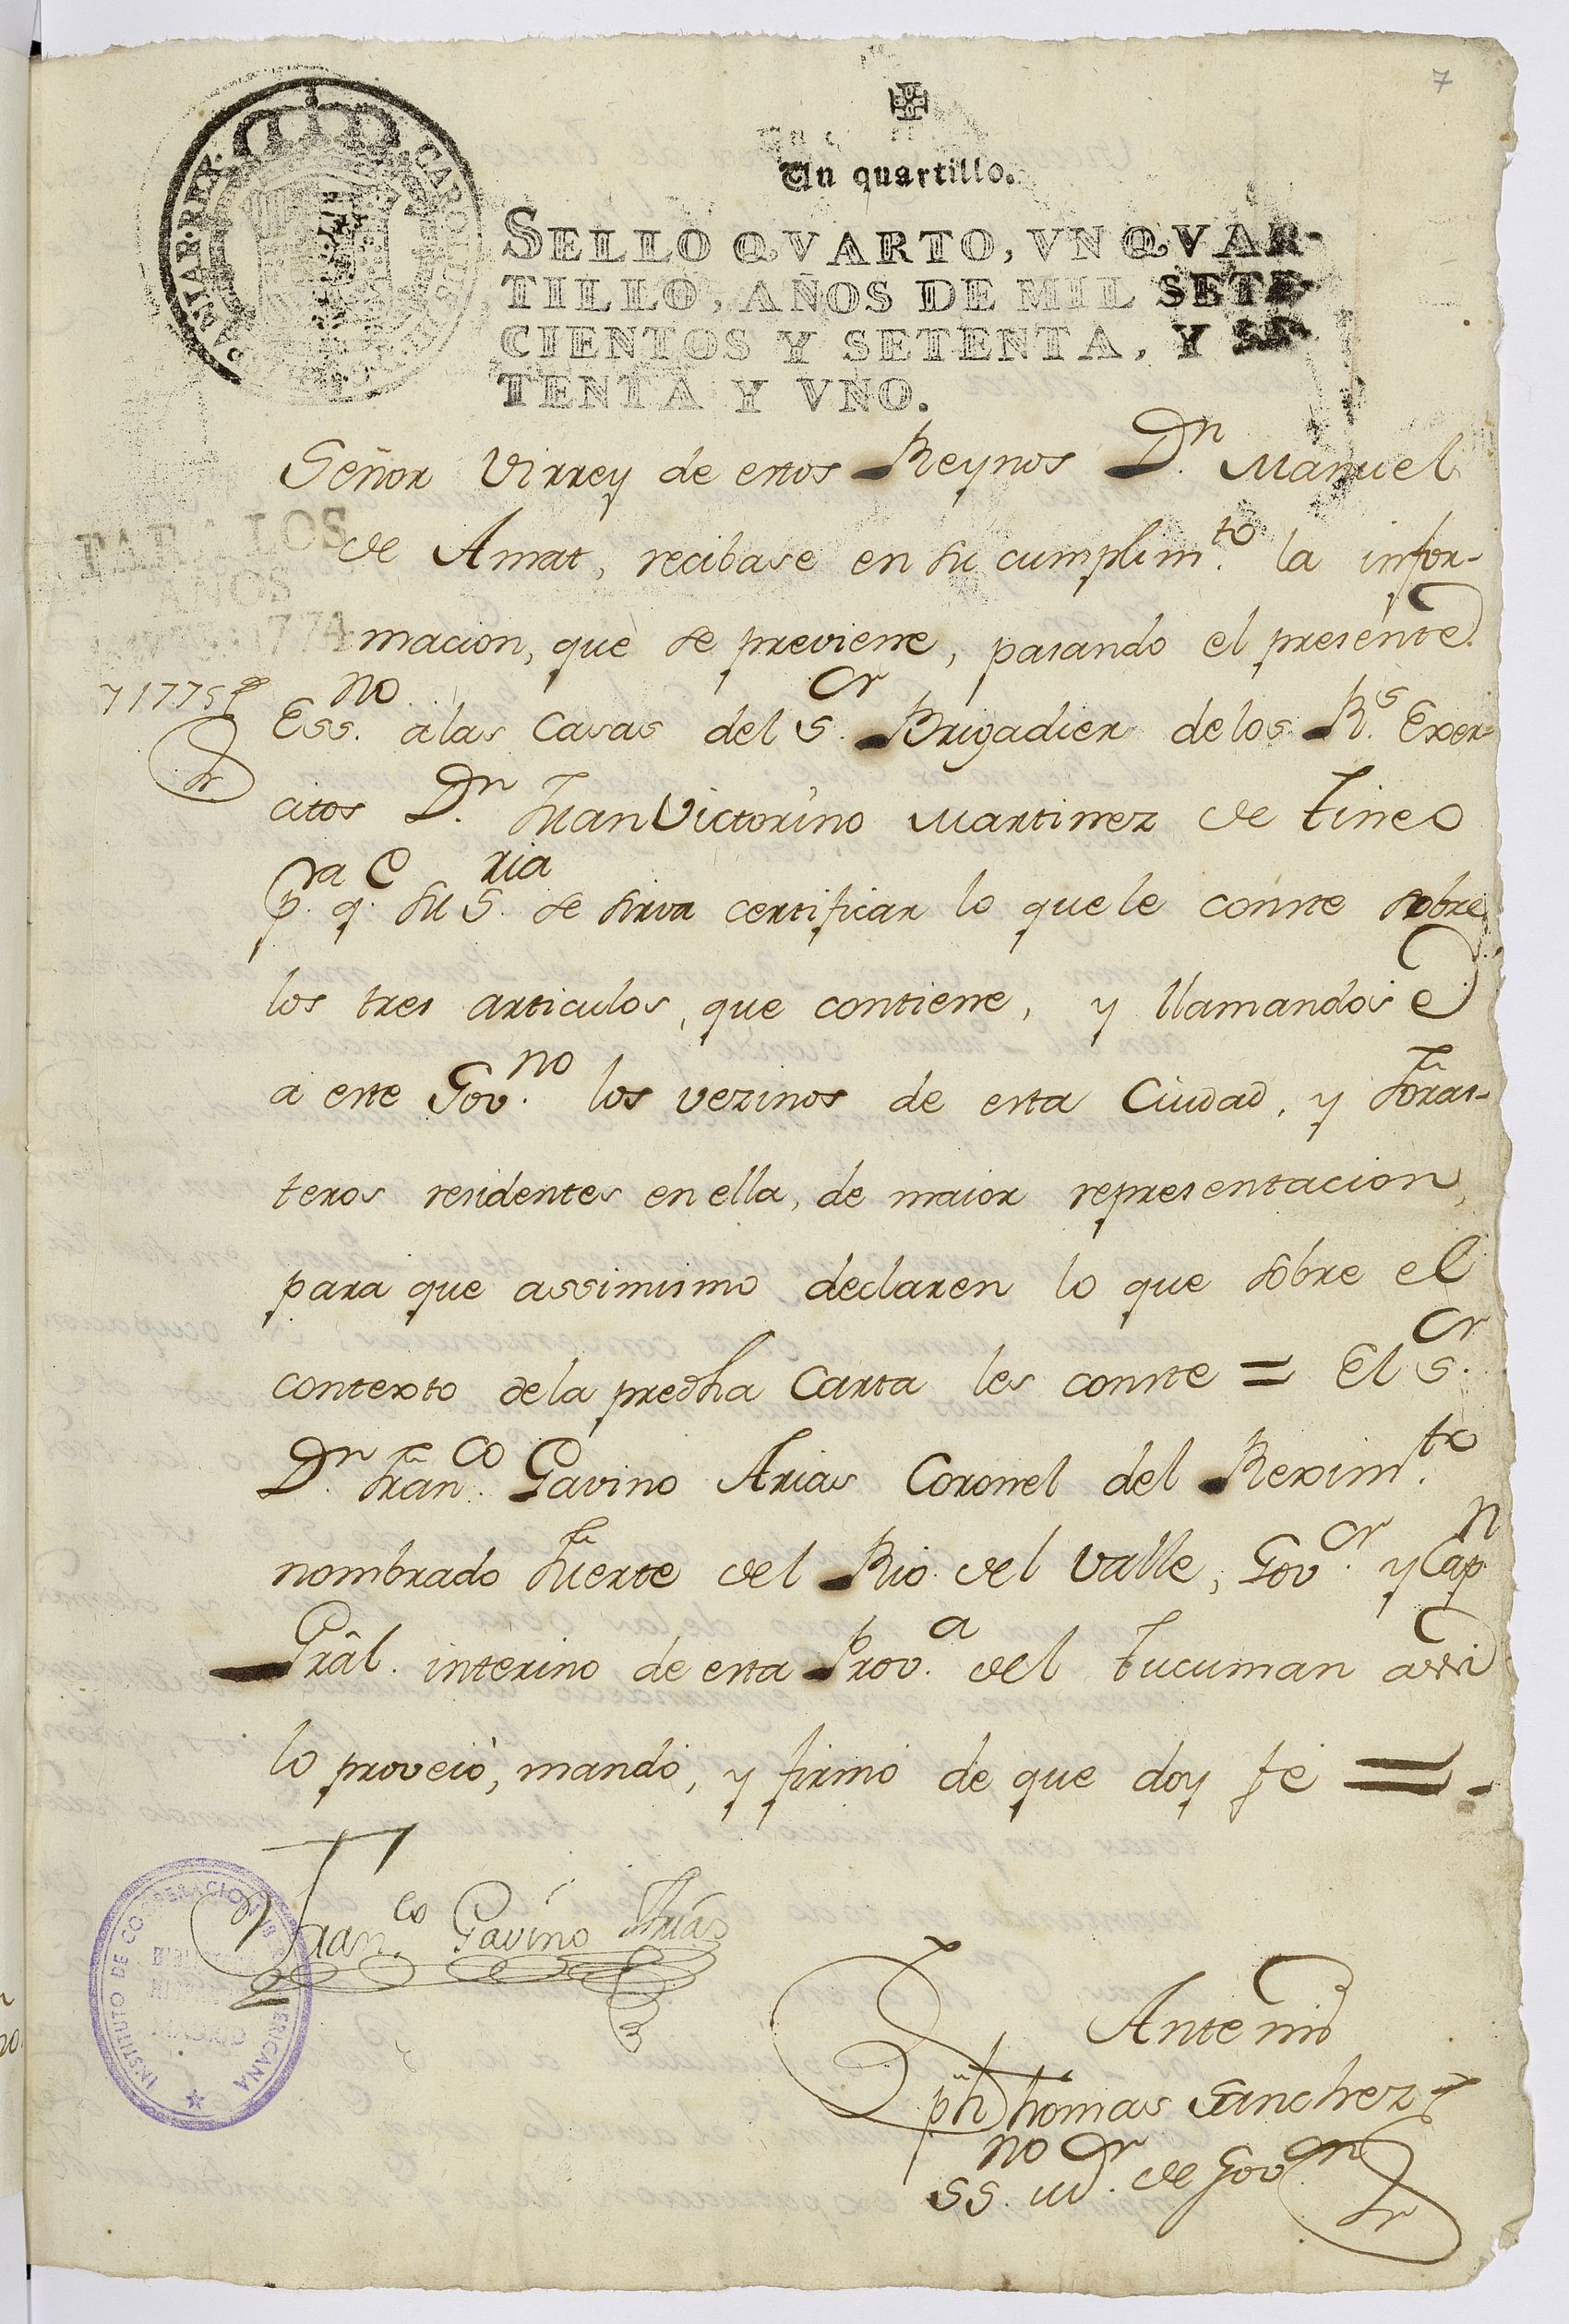 7
Un quartillo.
SELLO QVARTO, VN QVAR-
TILLO, AÑOS DE MIL SETE-
CIENTOS Y SETENTA, Y SE-
TENTA Y VNO.
PARA LOS
AÑOS
1774
y 1775
Señor Virrey de estos Reynos Dn. Manuel
de Amat, recibase en su cumplimto. la infor-
macion, que se previene, pasando el presente
Essno. a las Casas del Sor. Brigadier de los Rs. Exer-
citos Dn. Juan Victorino Martinez de Tineo
pra. qe. su Sria. se sirva certificar lo que le conste sobre
los tres articulos, que contiene, y llamandose
a este Govno. los vezinos de esta Ciudad, y foras-
teros residentes en ella, de maior representacion,
para que assimismo declaren lo que sobre el
contexto de la predha Carta les conste = El Sor.
Dn. Franco. Gavino Arias Coronel del Reximto.
nombrado fuerte del Rio del Valle, Govor. y Capn.
Grâl. interino de esta Prova. del Tucuman assi
lo proveió, mandó, y firmó de que doy fe =
Franco. Gavino Arias
Ante mi
Jph Thomas Sanchez
SSno. mor. de Govon
INSTITUTO DE COOPERACION IBEROAMERICANA
BIBLIOTECA
HISPANICA
MADRID